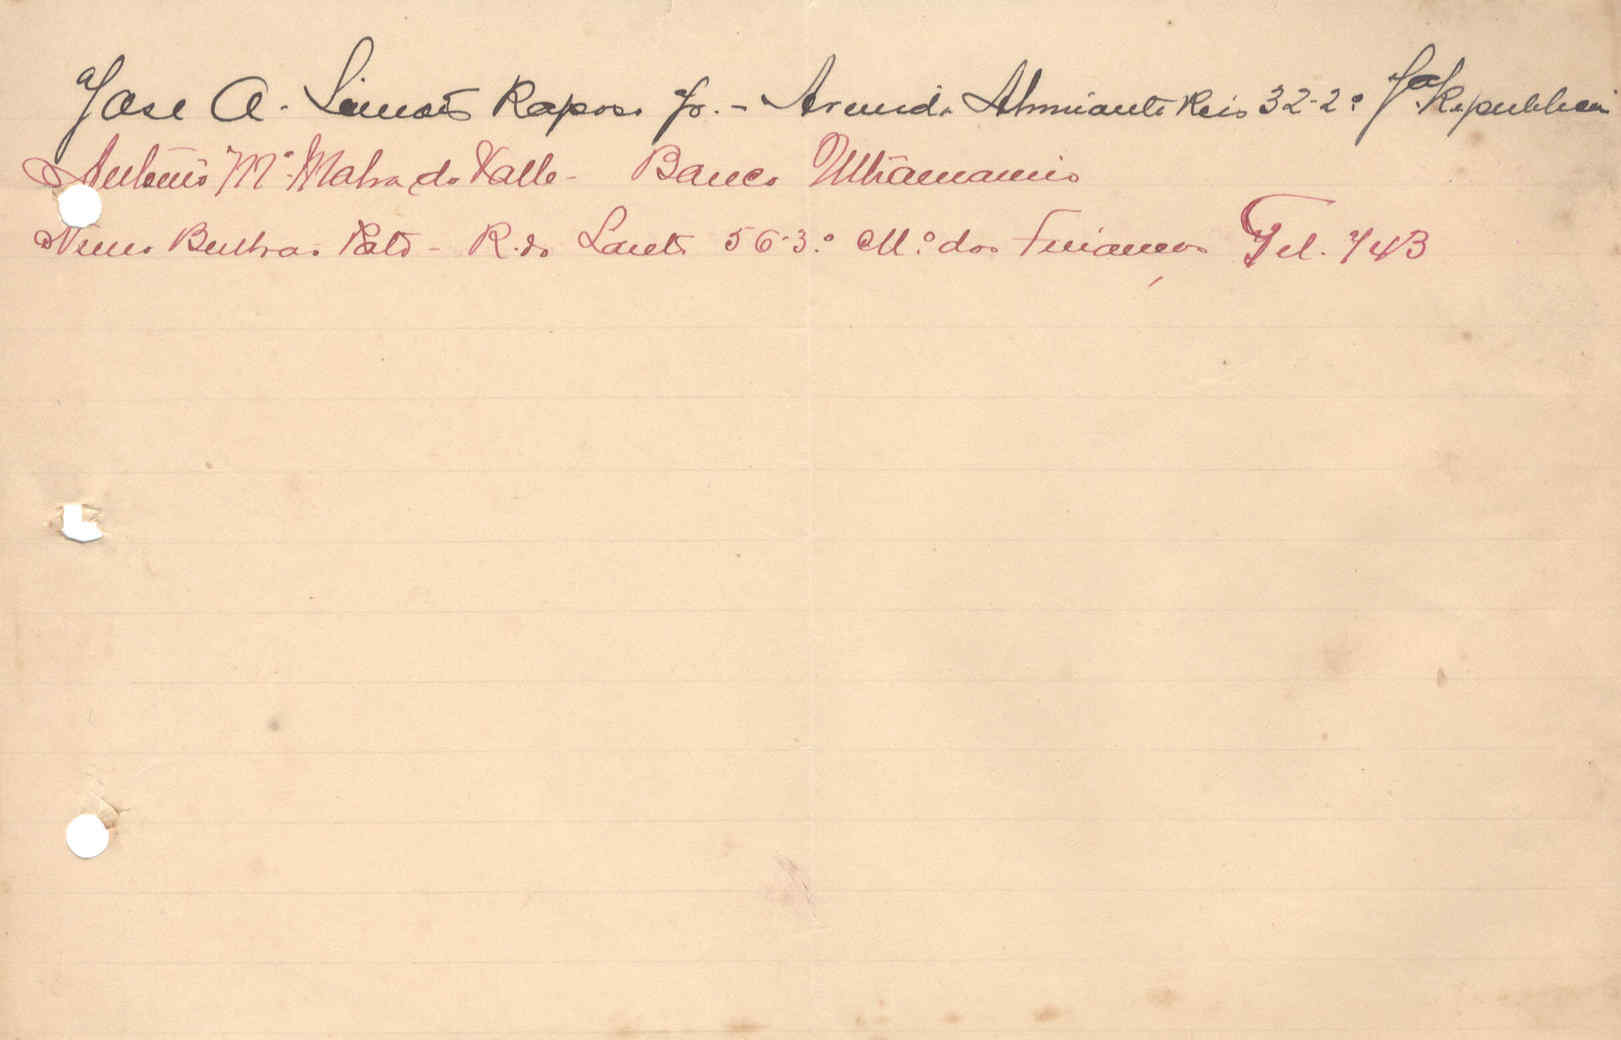 José A. Simões Raposo Jr. - Avenida Almirante Reis 32-2º Gda Republicana
António Mª Malva do Valle - Banco Ultramarino
Nuno Bulhão Pato - R. do Salitre 56-3.º Mº das Finanças Tel. 743